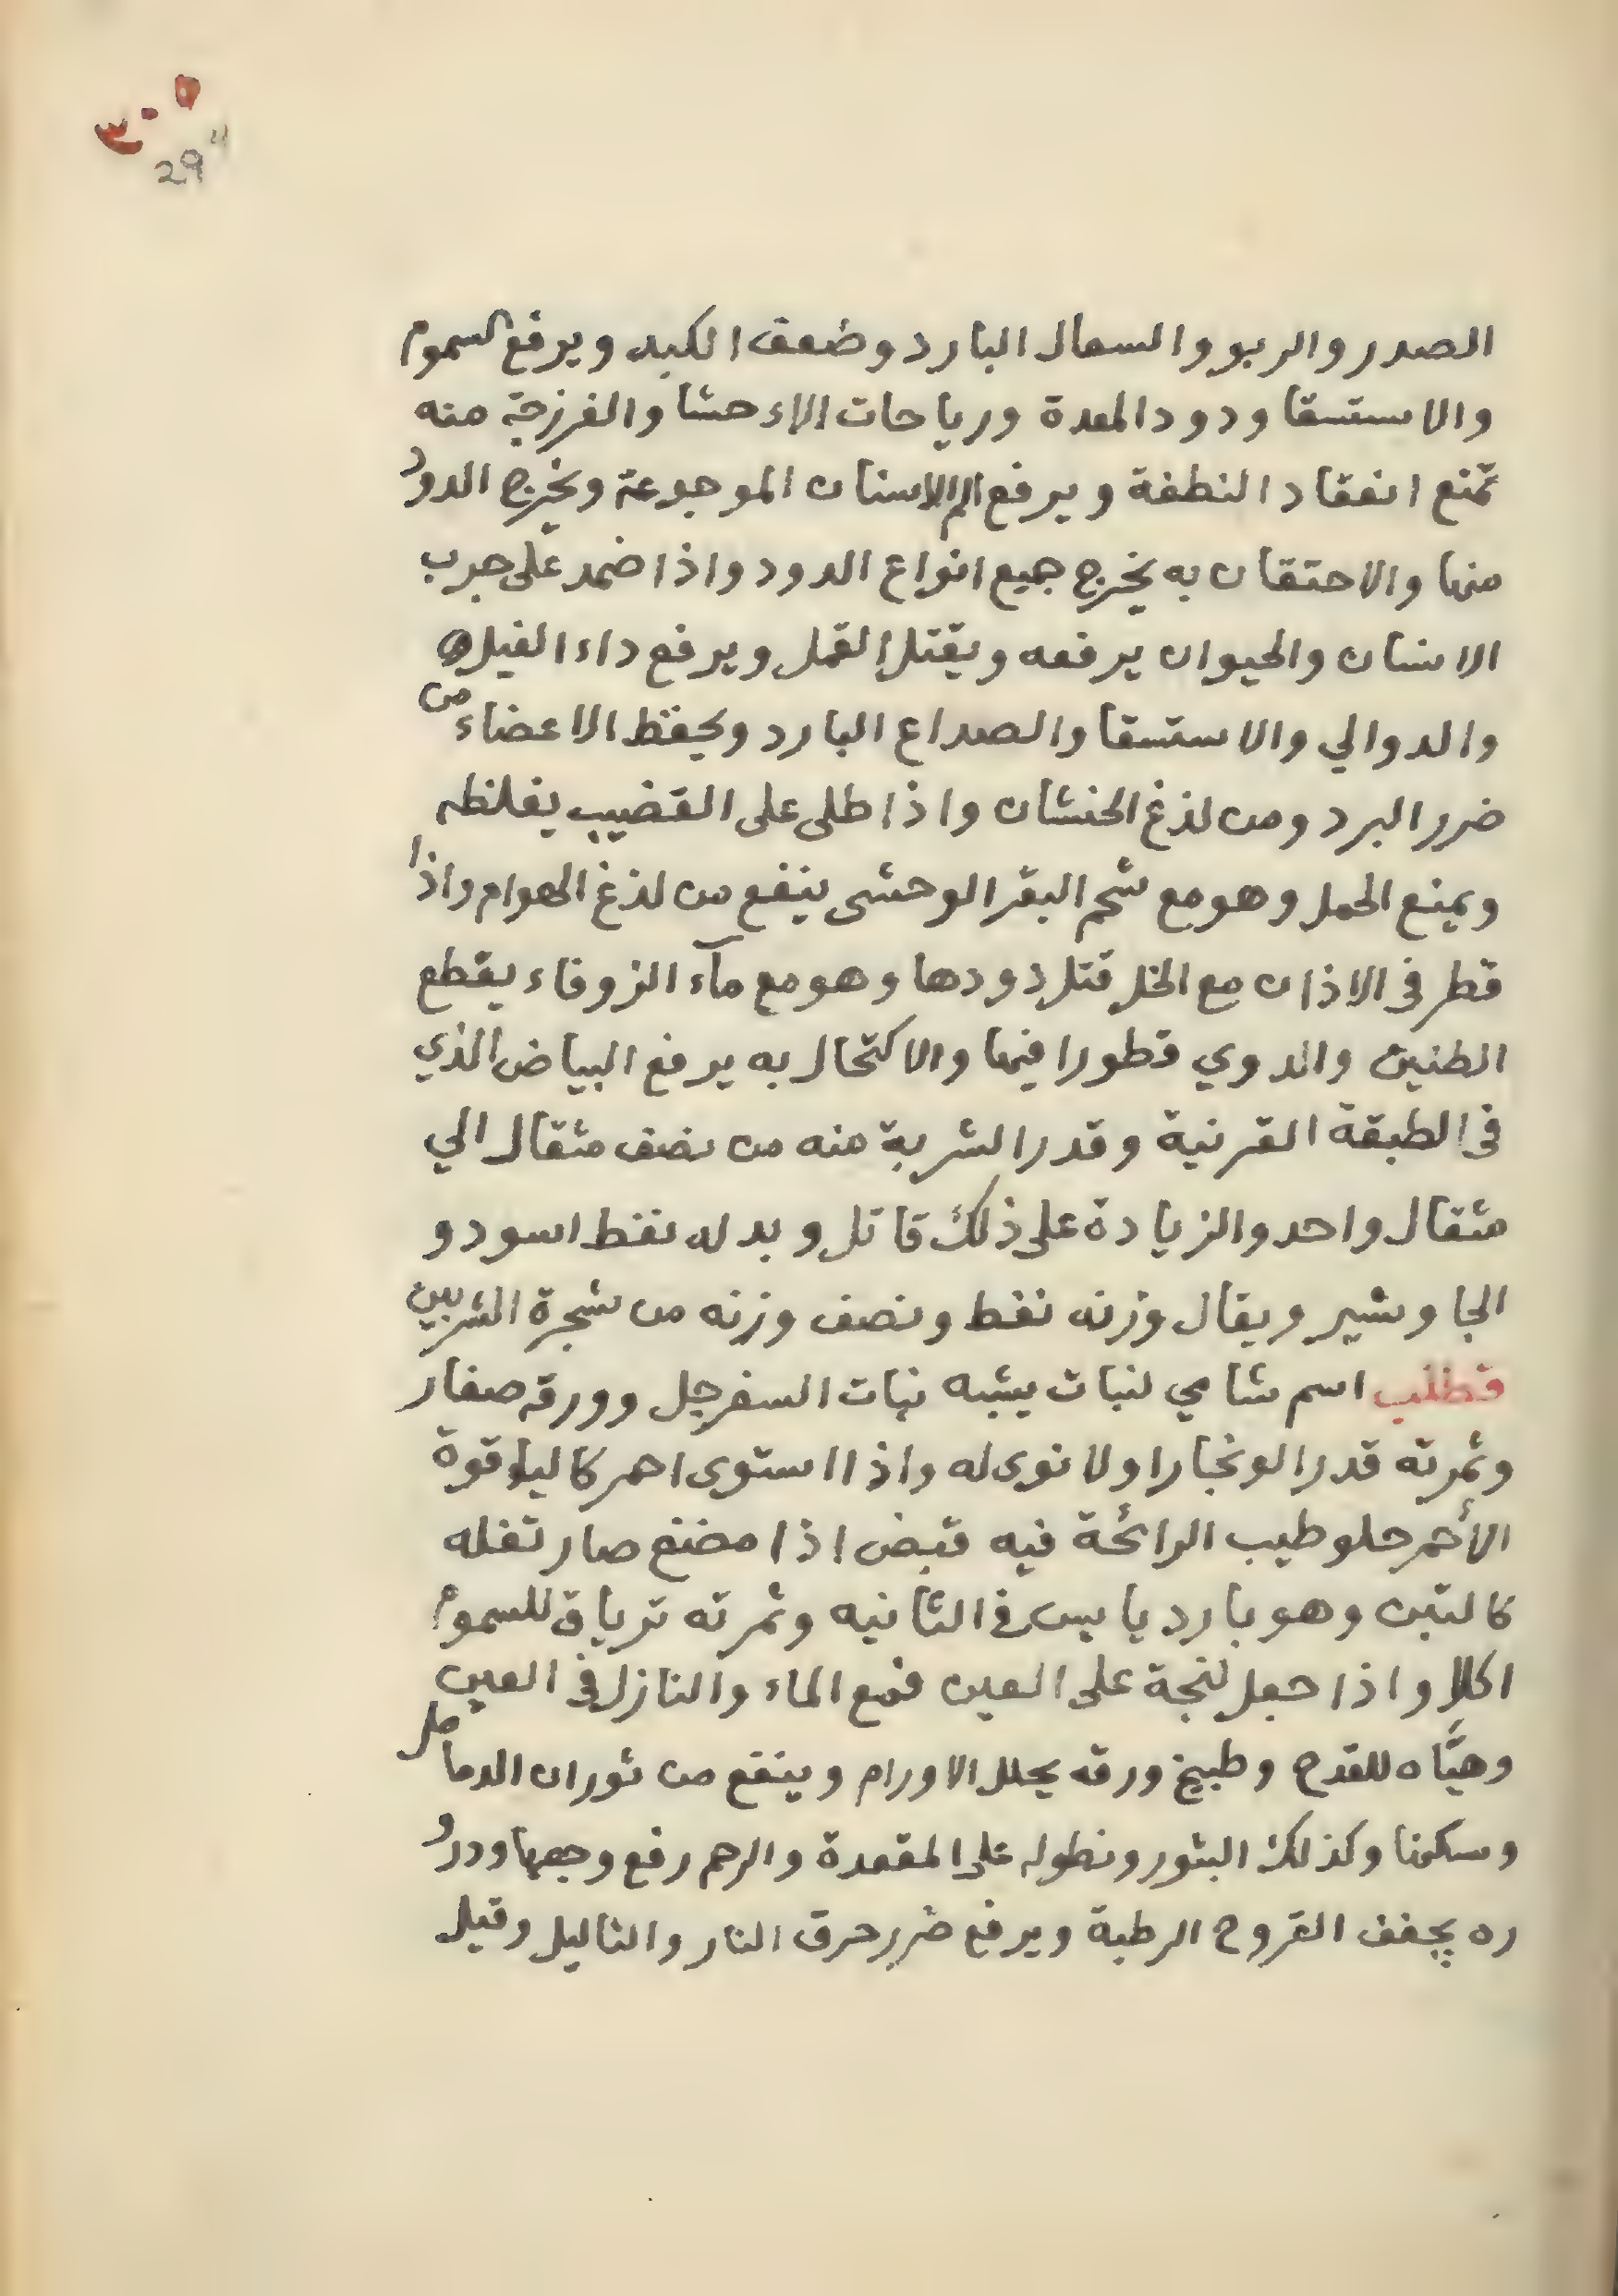 ٣٠٥
29"
الصدر والربو والسعال البارد وضعف الكبد ويرفع السموم
والاستسقا ودود المعدة ورياحات الاءحشا والفرزجة منه
تمنع انعقاد النطفة ويرفع الم الاسنان الموجوعة ويخرج الدود
منها والاحتقان به يخرج جميع انواع الدود واذا ضمد على جرب
الانسان والحيوان يرفعه ويقتل القمل ويرفع داء الفيل
والدوالي والاستسقا والصداع البارد ويحفظ الاعضاء من
ضرر البرد ومن لذغ الحنشان واذا طلى على القضيب يغلظه
ويمنع الحمل وهو مع شحم البقر الوحشى ينفع من لذغ الهوام واذا
قطر فى الاذان مع الخل قتل دودها وهو مع مآء الزوفاء يقطع
الطنين والدوي قطورا فيها والاكتحال به يرفع البياض الذي
فى الطبقة القرنية وقدر الشربة منه من نصف مثقال الي
مثقال واحد والزيادة على ذلك قاتل وبدله نفط اسود و
الجاوشير ويقال وزنه نفط ونصف وزنه من شجرة الشربين
قطلب اسم شامي لنبات يشبه نبات السفرجل وورقه صغار
وثمرته قدر الونجارا ولا نوى له واذا استوى احمر كالياقوة
الأحمر حلو طيب الرائحة فيه قبض اذا مضغ صار تفله
كالتبن وهو بارد يابس فى الثانيه وثمرته ترياق للسموم
اكلا واذا جعل لنجة على العين قمع الماء والنازل فى العين
وهيَّاه للقدح وطبيخ ورقه يحلل الاورام وينفع من ثوران الدمامل
وسكنها وكذلك البثور ونطوله على المقعدة والرحم رفع وجعها ودرو
ره يجفف القروح الرطبة ويرفع ضرر حرق النار والثاليل وقيل